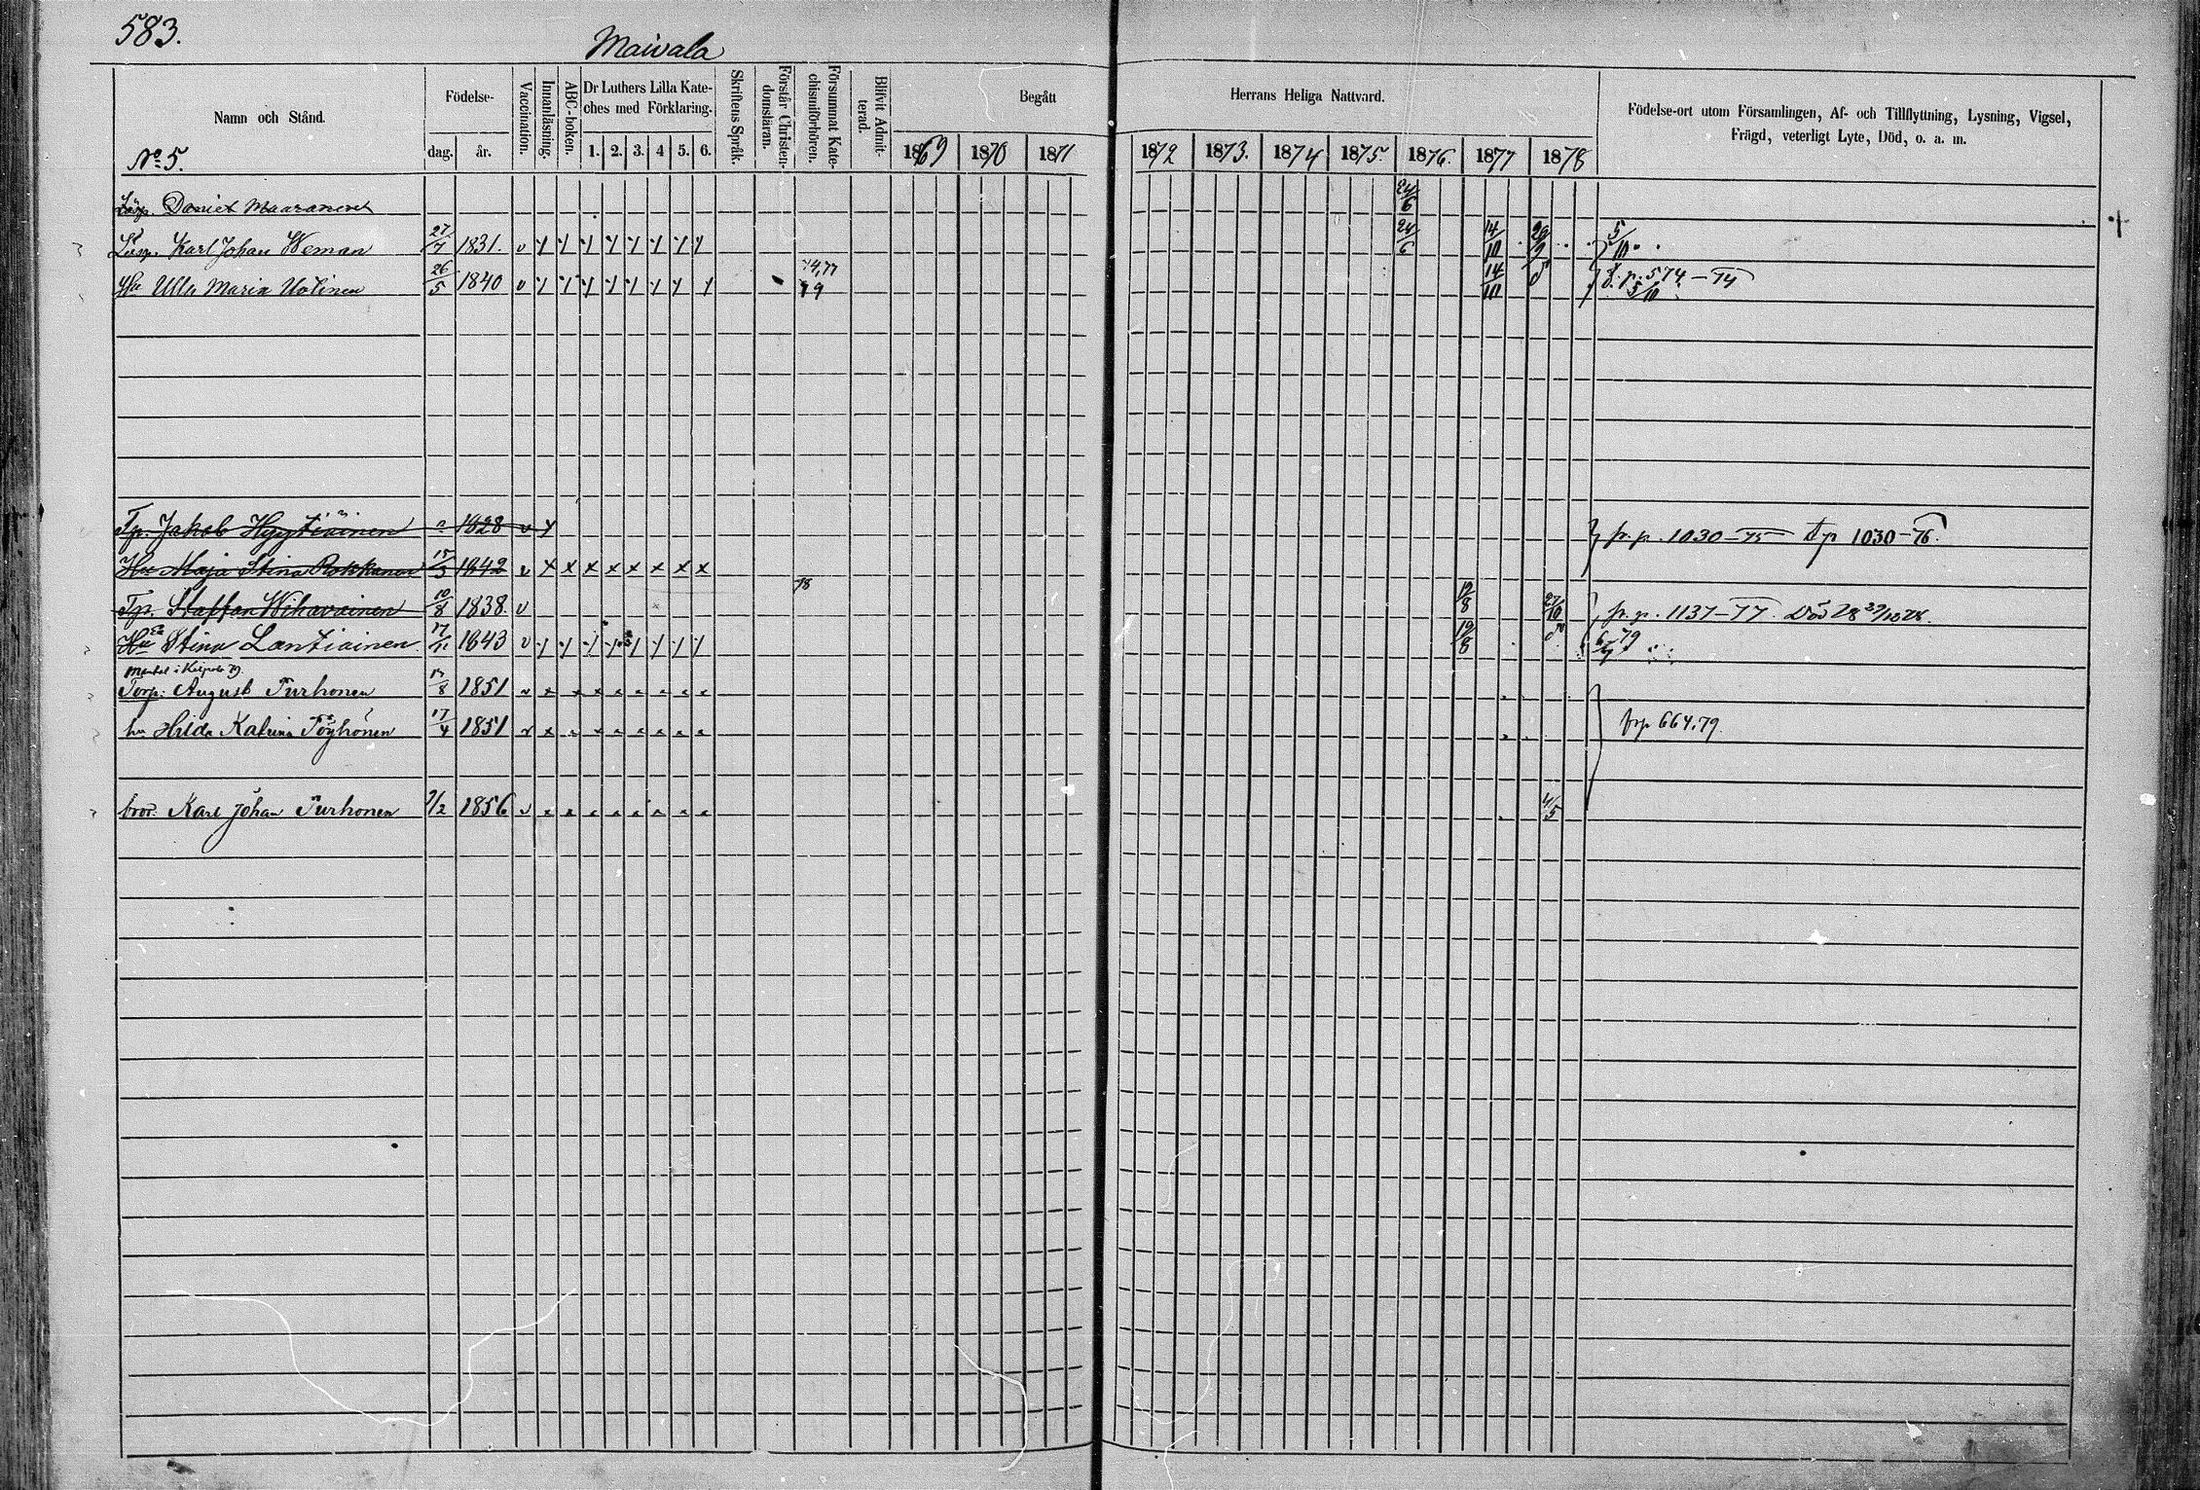 583.
Maivala
Namn och Stånd.
Födelse-
dag. år.
Vaccination.
Innanläsning.
ABC-boken.
Dr Luthers Lilla Kate-
ches med Förklaring.
1. 2. 3. 4 5. 6.
Skriftens Språk.
Förstår Christen-
domsläran.
Försummat Kate-
chismiförhören.
Blifvit Admit-
terad.
Begått Herrans Heliga Nattvard.
1869 1870 1871 1872 1873. 1874 1875. 1876. 1877 1878
Födelse-ort utom Församlingen, Af- och Tillflyttning, Lysning, Vigsel,
Frägd, veterligt Lyte, Död, o. a. m.
No 5.
Daniel Maaranen 24/6
Karl Johan Weman 27/7 1831. v 24/6 14/10 29/9 5/10
Hu Ulla Maria Uotinen 26/5 1840 v 74,77 79 14/10 f. p. 574 - 74 5/10
Tp. Jakob Hyytiäinen 1828 v fr. p. 1030 - 75 tp 1030 - 76.
Hu Maja Stina Rokkanen 15/3 1842 v x x x x x x x x
Tp. Staffan Wihavainen 10/8 1838. v 78 19/8 27/10 fr. p. 1137 - 77. Död
Stina Lantiainen 1843 v 19/8 79
Torp: August Turhonen 1851
hu Hilda Katrina Töyhönen 17/4 1851 frp 664.79.
bror. Karl Johan Turhonen 7/2 1856 v 4/5